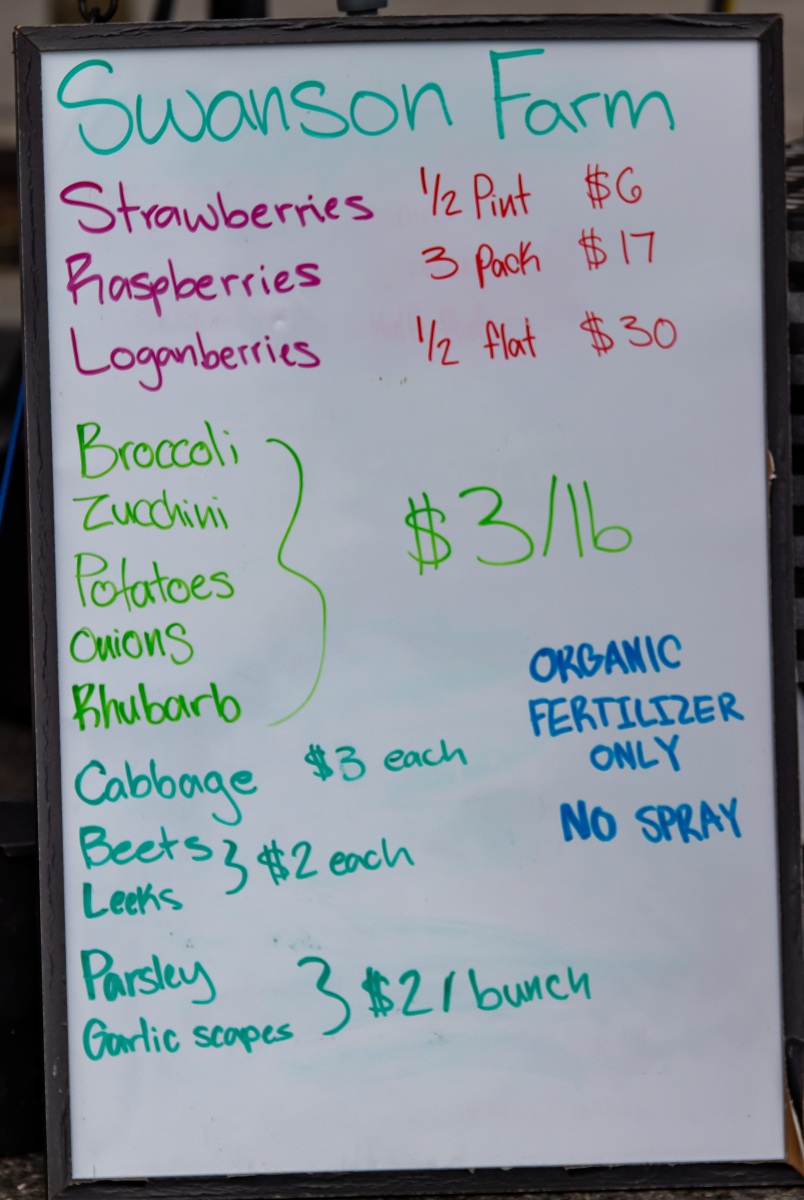 Swanson Farm
Strawberries 1/2 Pint $6
Raspberries 3 Pack $17
Loganberries 1/2 flat $30
Broccoli
Zucchini
Potatoes
Onions
Rhubarb
$3/lb
ORGANIC
FERTILIZER
ONLY
NO SPRAY
Cabbage $3 each
Beets
Leeks
$2 each
Parsley
Garlic scapes
$2/bunch